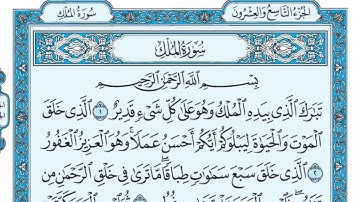 سُورَةُ المُلْكِ
الجُزْءُ التَّاسِعُ وَالعِشْرُونَ
سُورَةُ المُلْكِ
بِسْمِ اللَّهِ الرَّحْمَٰنِ الرَّحِيمِ
تَبَارَكَ الَّذِي بِيَدِهِ الْمُلْكُ وَهُوَ عَلَىٰ كُلِّ شَيْءٍ قَدِيرٌ ١ الَّذِي خَلَقَ
الْمَوْتَ وَالْحَيَاةَ لِيَبْلُوَكُمْ أَيُّكُمْ أَحْسَنُ عَمَلًا وَهُوَ الْعَزِيزُ الْغَفُورُ
٢ الَّذِي خَلَقَ سَبْعَ سَمَاوَاتٍ طِبَاقًا مَا تَرَىٰ فِي خَلْقِ الرَّحْمَٰنِ مِن